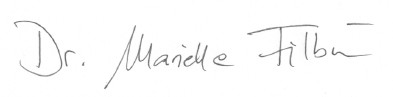 Dr. Marielle Filbin